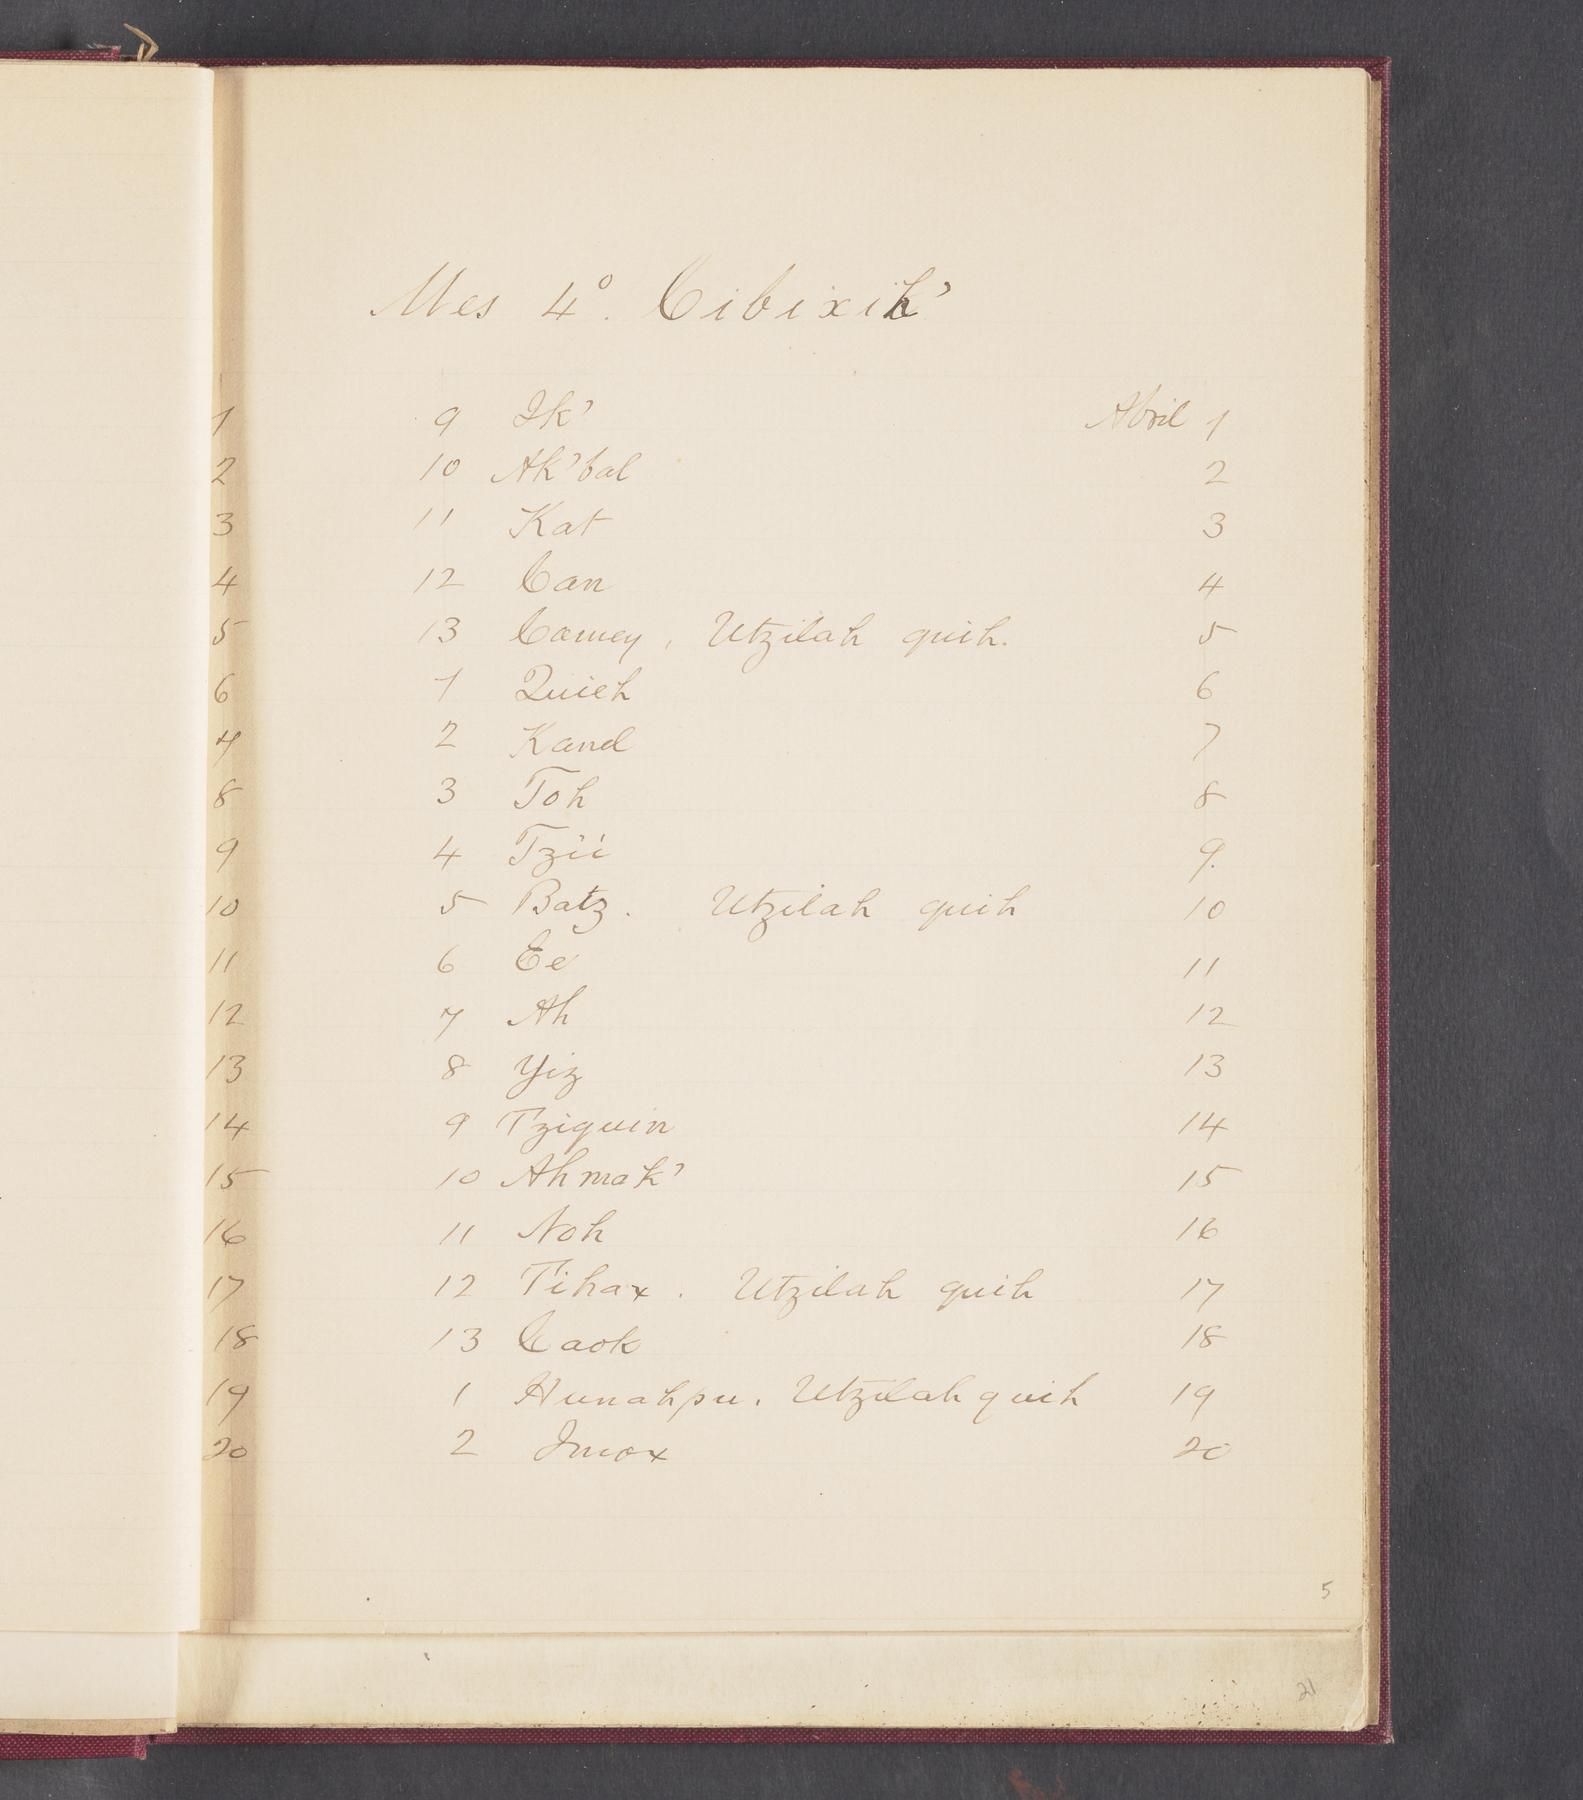 Mes 4º. Cibixik'
1 9 Ik' Abril 1
2 10 Ak'bal 2
3 11 Kat 3
4 12 Can 4
5 13 Camey, Utzilah quih. 5
6 1 Quieh 6
7 2 Kanel 7
8 3 Toh 8
9 4 Tzii 9.
10 5 Batz. Utzilah quih 10
11 6 Ee 11
12 7 Ah 12
13 8 Yiz 13
14 9 Tziquin 14
15 10 Ahmak' 15
16 11 Noh 16
17 12 Tihax. Utzilah quih 17
18 13 Caok 18
19 1 Hunahpu. Utzilah quih 19
20 2 Imox 20
5
21